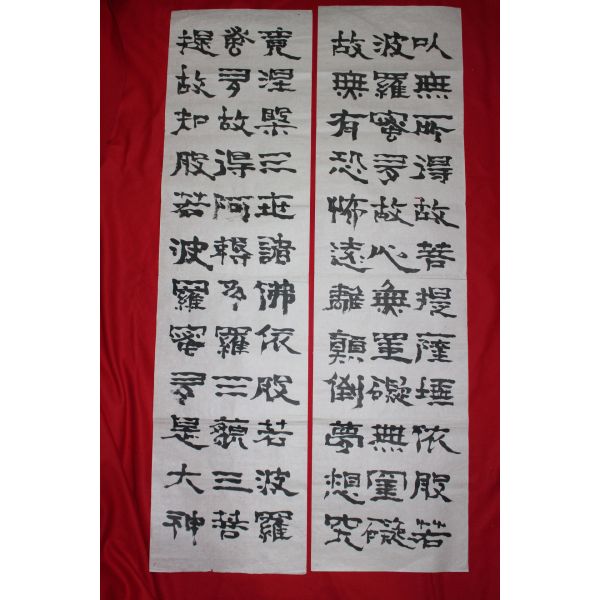 以無所得故菩提薩埵依般若
波羅蜜多故心無罣礙無罣礙
故無有恐怖遠離顚倒夢想究
竟涅槃三世諸佛依般若波羅
蜜多故得阿耨多羅三藐三菩
提故知般若波羅蜜多是大神